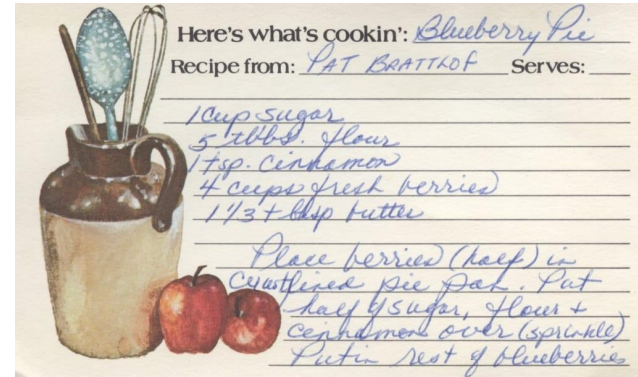 Here's what's cookin': Blueberry Pie
Recipe from: PAT BRATTLOF Serves:
1 cup sugar
5 tbbs. flour
1 tsp. cinnamon
4 cups fresh berries
1 1/3 tbsp butter
Place berries (half) in
crustlined pie pan. Put
half of sugar, flour +
cinnamon over (sprinkle)
Put in rest of blueberries